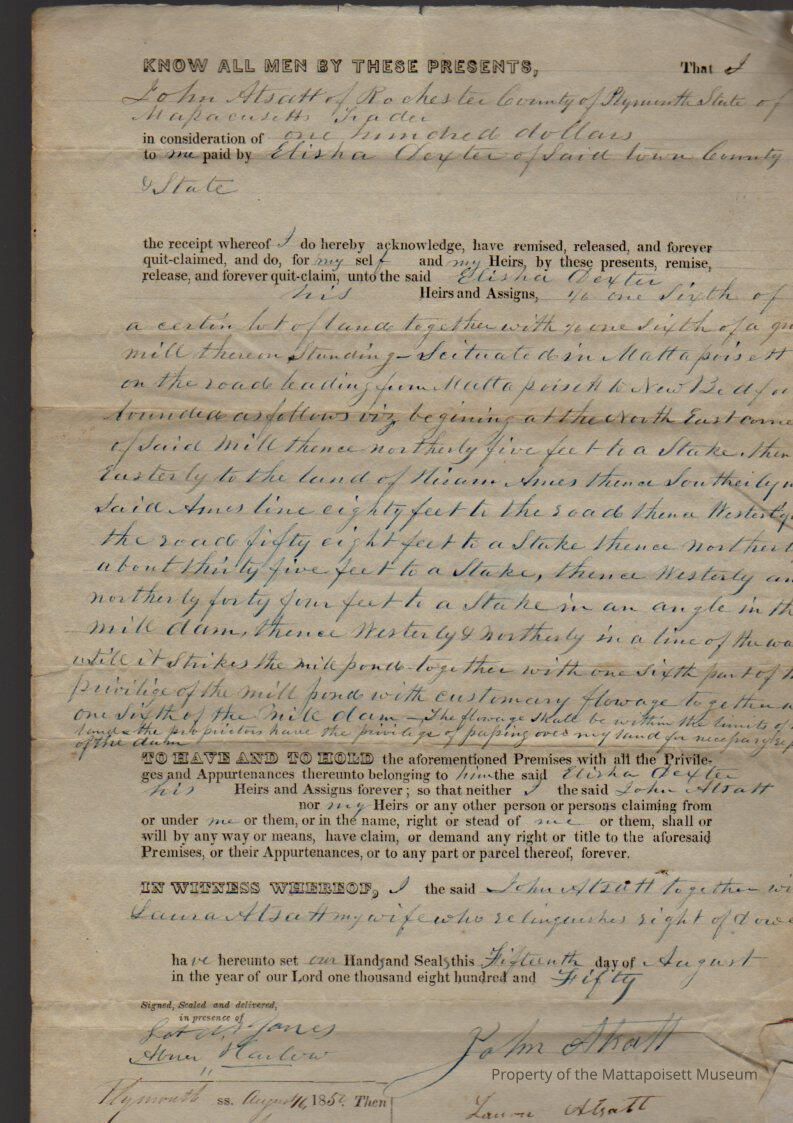 KNOW ALL MEN BY THESE PRESENTS, That I
John Atsatt of Rochester County of Plymouth State of
Massacusetts Trader
in consideration of one hundred dollars
to me paid by Elisha Dexter of Said town County
& State
the receipt whereof I do hereby acknowledge, have remised, released, and forever
quit-claimed, and do, for my self and my Heirs, by these presents, remise,
release, and forever quit-claim, unto the said Elisha Dexter
his Heirs and Assigns, one Sixth of
a certin lot of land together with one Sixth of a
mill thereon Standing - Scituated in Mattapoisett
on the road leading from Mattapoisett to New Bedfo
bounded as follows viz begining at the North East corne
of Said Mill thence northerly five feet to a Stake, then
Easterly to the land of Hiram Ames thence Southerly
Said Ames line eighty feet to the road thence Westerly
the road fifty eight feet to a Stake thence northerl
about thirty five feet to a Stake, thence Westerly an
northerly forty four feet to a Stake in an angle in th
mill dam, thence Westerly & Northerly in a line of the wa
untill it Strikes the mill pond - together with one Sixth part of t
privilige of the mill pond with customary flowage together
one Sixth of the Mill dam - The flowage Shall be within the limits of
land & the propriotors have the privilege of passing over my land for necessary
of the dam
TO HAVE AND TO HOLD the aforementioned Premises with all the Privile-
ges and Appurtenances thereunto belonging to him the said Elisha Dexter
his Heirs and Assigns forever; so that neither I the said John Atsatt
nor my Heirs or any other person or persons claiming from
or under me or them, or in the name, right or stead of me or them, shall or
will by any way or means, have claim, or demand any right or title to the aforesaid
Premises, or their Appurtenances, or to any part or parcel thereof, forever.
IN WITNESS WHEREOF, I the said John Atsatt together wi
Laura Atsatt my wife who relinquishes right of dowe
have hereunto set our Hands and Seals this Fifteenth day of August
in the year of our Lord one thousand eight hundred and Fifty
Signed, Sealed and delivered,
in presence of
Jones
Abner Harlow
John Atsatt
Property of the Mattapoisett Museum
Plymouth ss. August 16 1850. Then
Laura Atsatt